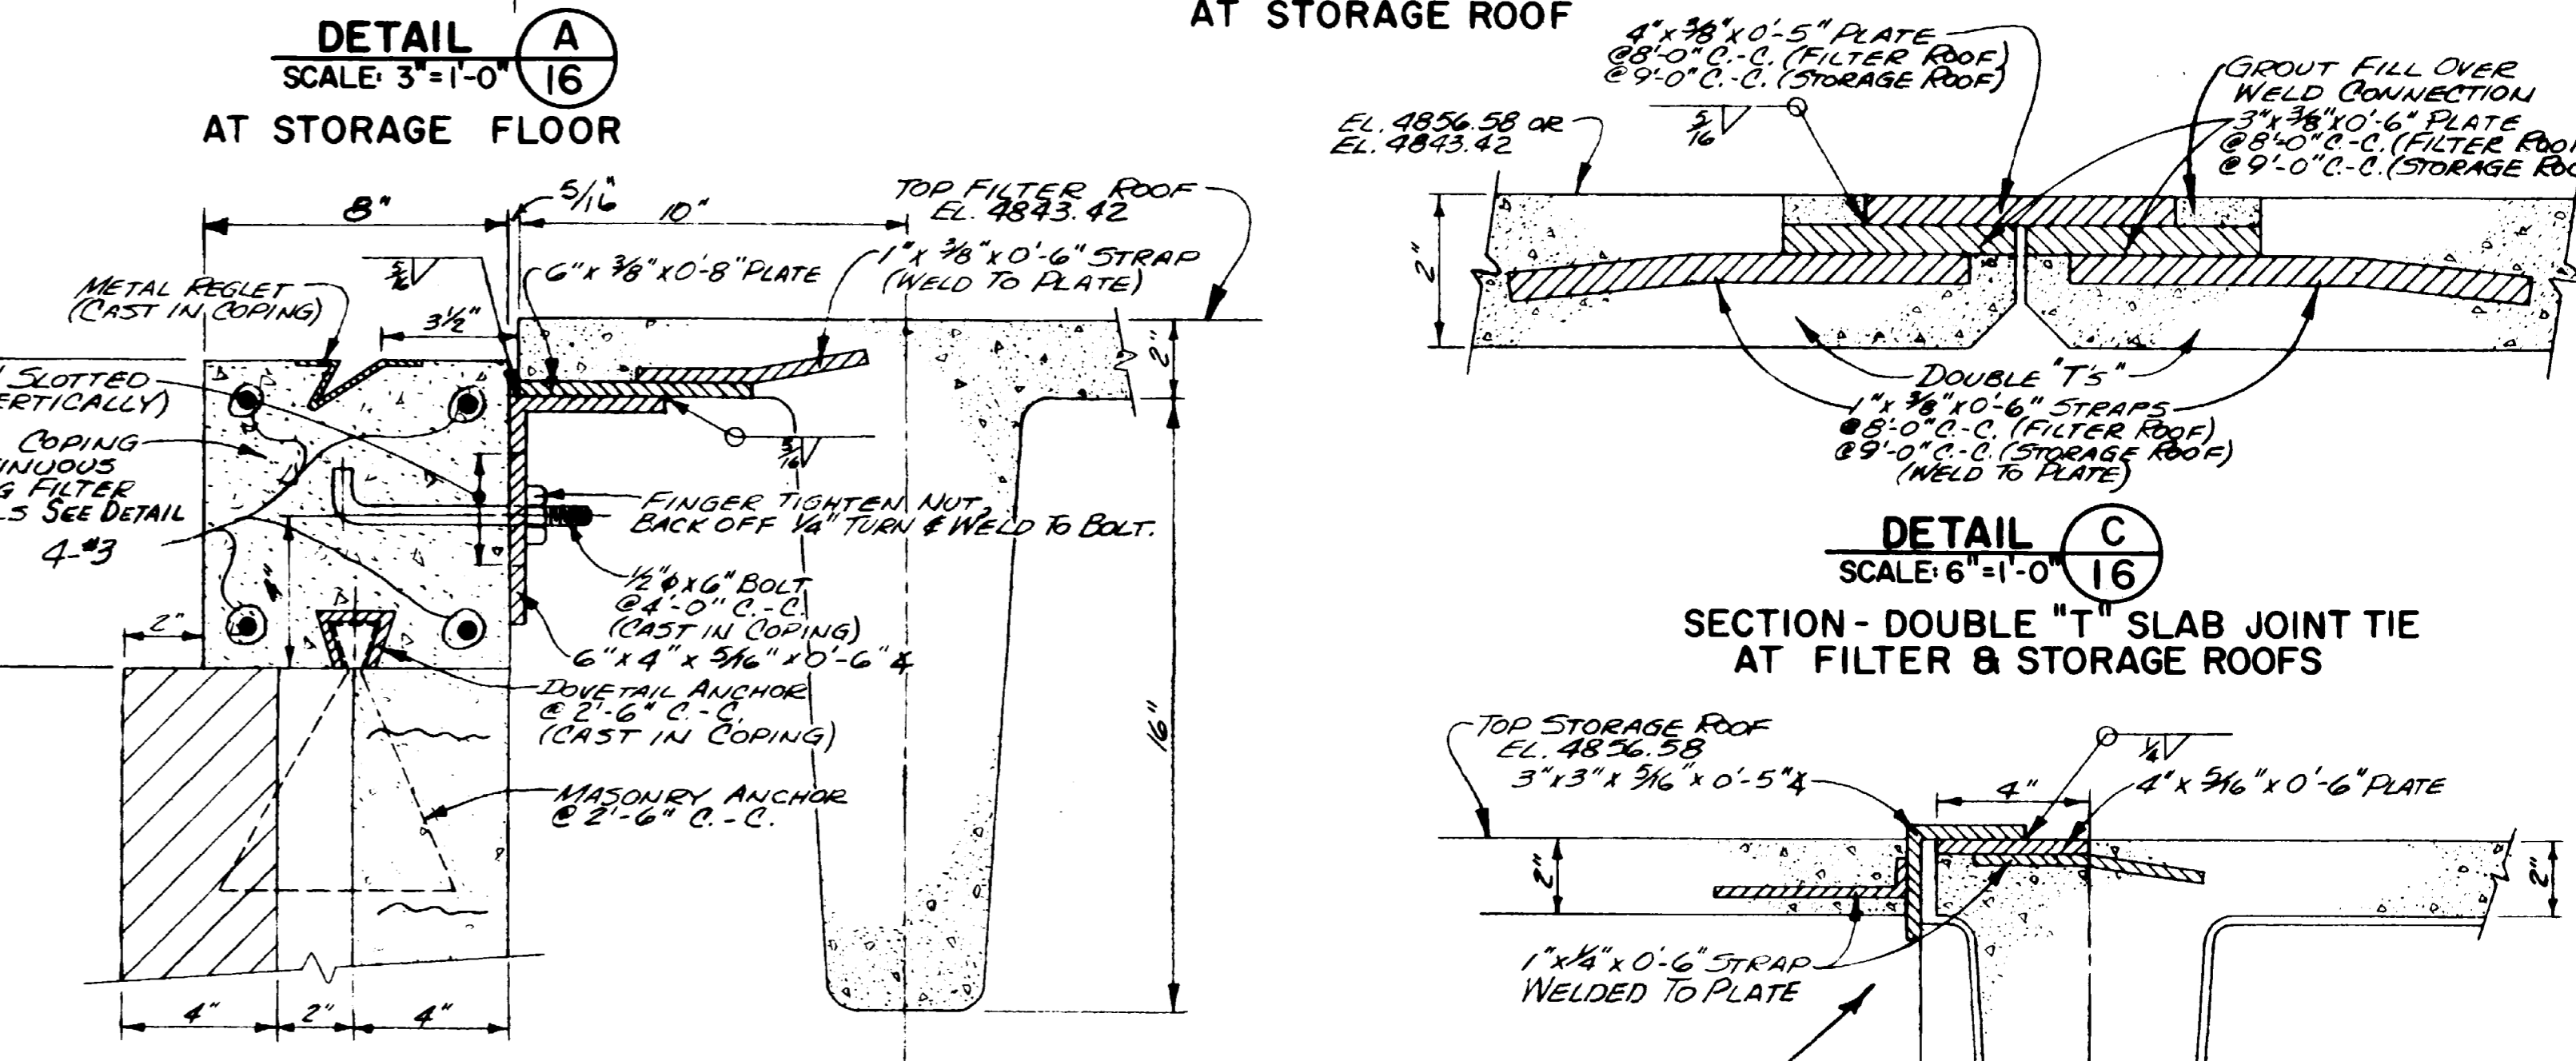 DETAIL A
SCALE: 3"=1'-0" 16
AT STORAGE FLOOR
8"
5/16"
10"
TOP FILTER ROOF
EL. 4843.42
5/16
6" x 3/8" x 0'-8" PLATE
1" x 3/8" x 0'-6" STRAP
(WELD TO PLATE)
METAL REGLET
(CAST IN COPING)
3 1/2"
2"
SLOTTED
VERTICALLY)
COPING
FILTER
SEE DETAIL
4-#3
5/16
FINGER TIGHTEN NUT,
BACK OFF 1/4" TURN & WELD TO BOLT.
4"
1/2"ϕ x 6" BOLT
@ 4'-0" C.-C.
(CAST IN COPING)
2"
6" x 4" x 5/16" x 0'-6" ∠
DOVETAIL ANCHOR
@ 2'-6" C.-C.
(CAST IN COPING)
16"
MASONRY ANCHOR
@ 2'-6" C.-C.
4"
2"
4"
AT STORAGE ROOF
4" x 3/8" x 0'-5" PLATE
@8'-0" C.-C. (FILTER ROOF)
@9'-0" C.-C. (STORAGE ROOF)
GROUT FILL OVER
WELD CONNECTION
3" x 3/8" x 0'-6" PLATE
@8'-0" C.-C. (FILTER ROOF
@9'-0" C.-C. (STORAGE ROO
5/16
EL. 4856.58 OR
EL. 4843.42
2"
DOUBLE "T'S"
1" x 3/8" x 0'-6" STRAPS
@8'-0" C.-C. (FILTER ROOF)
@9'-0" C.-C. (STORAGE ROOF)
(WELD TO PLATE)
DETAIL C
SCALE: 6"=1'-0" 16
SECTION - DOUBLE "T" SLAB JOINT TIE
AT FILTER & STORAGE ROOFS
TOP STORAGE ROOF
EL. 4856.58
3" x 3" x 5/16" x 0'-5" ∠
1/4
4"
4" x 5/16" x 0'-6" PLATE
2"
2"
1" x 1/4" x 0'-6" STRAP
WELDED TO PLATE